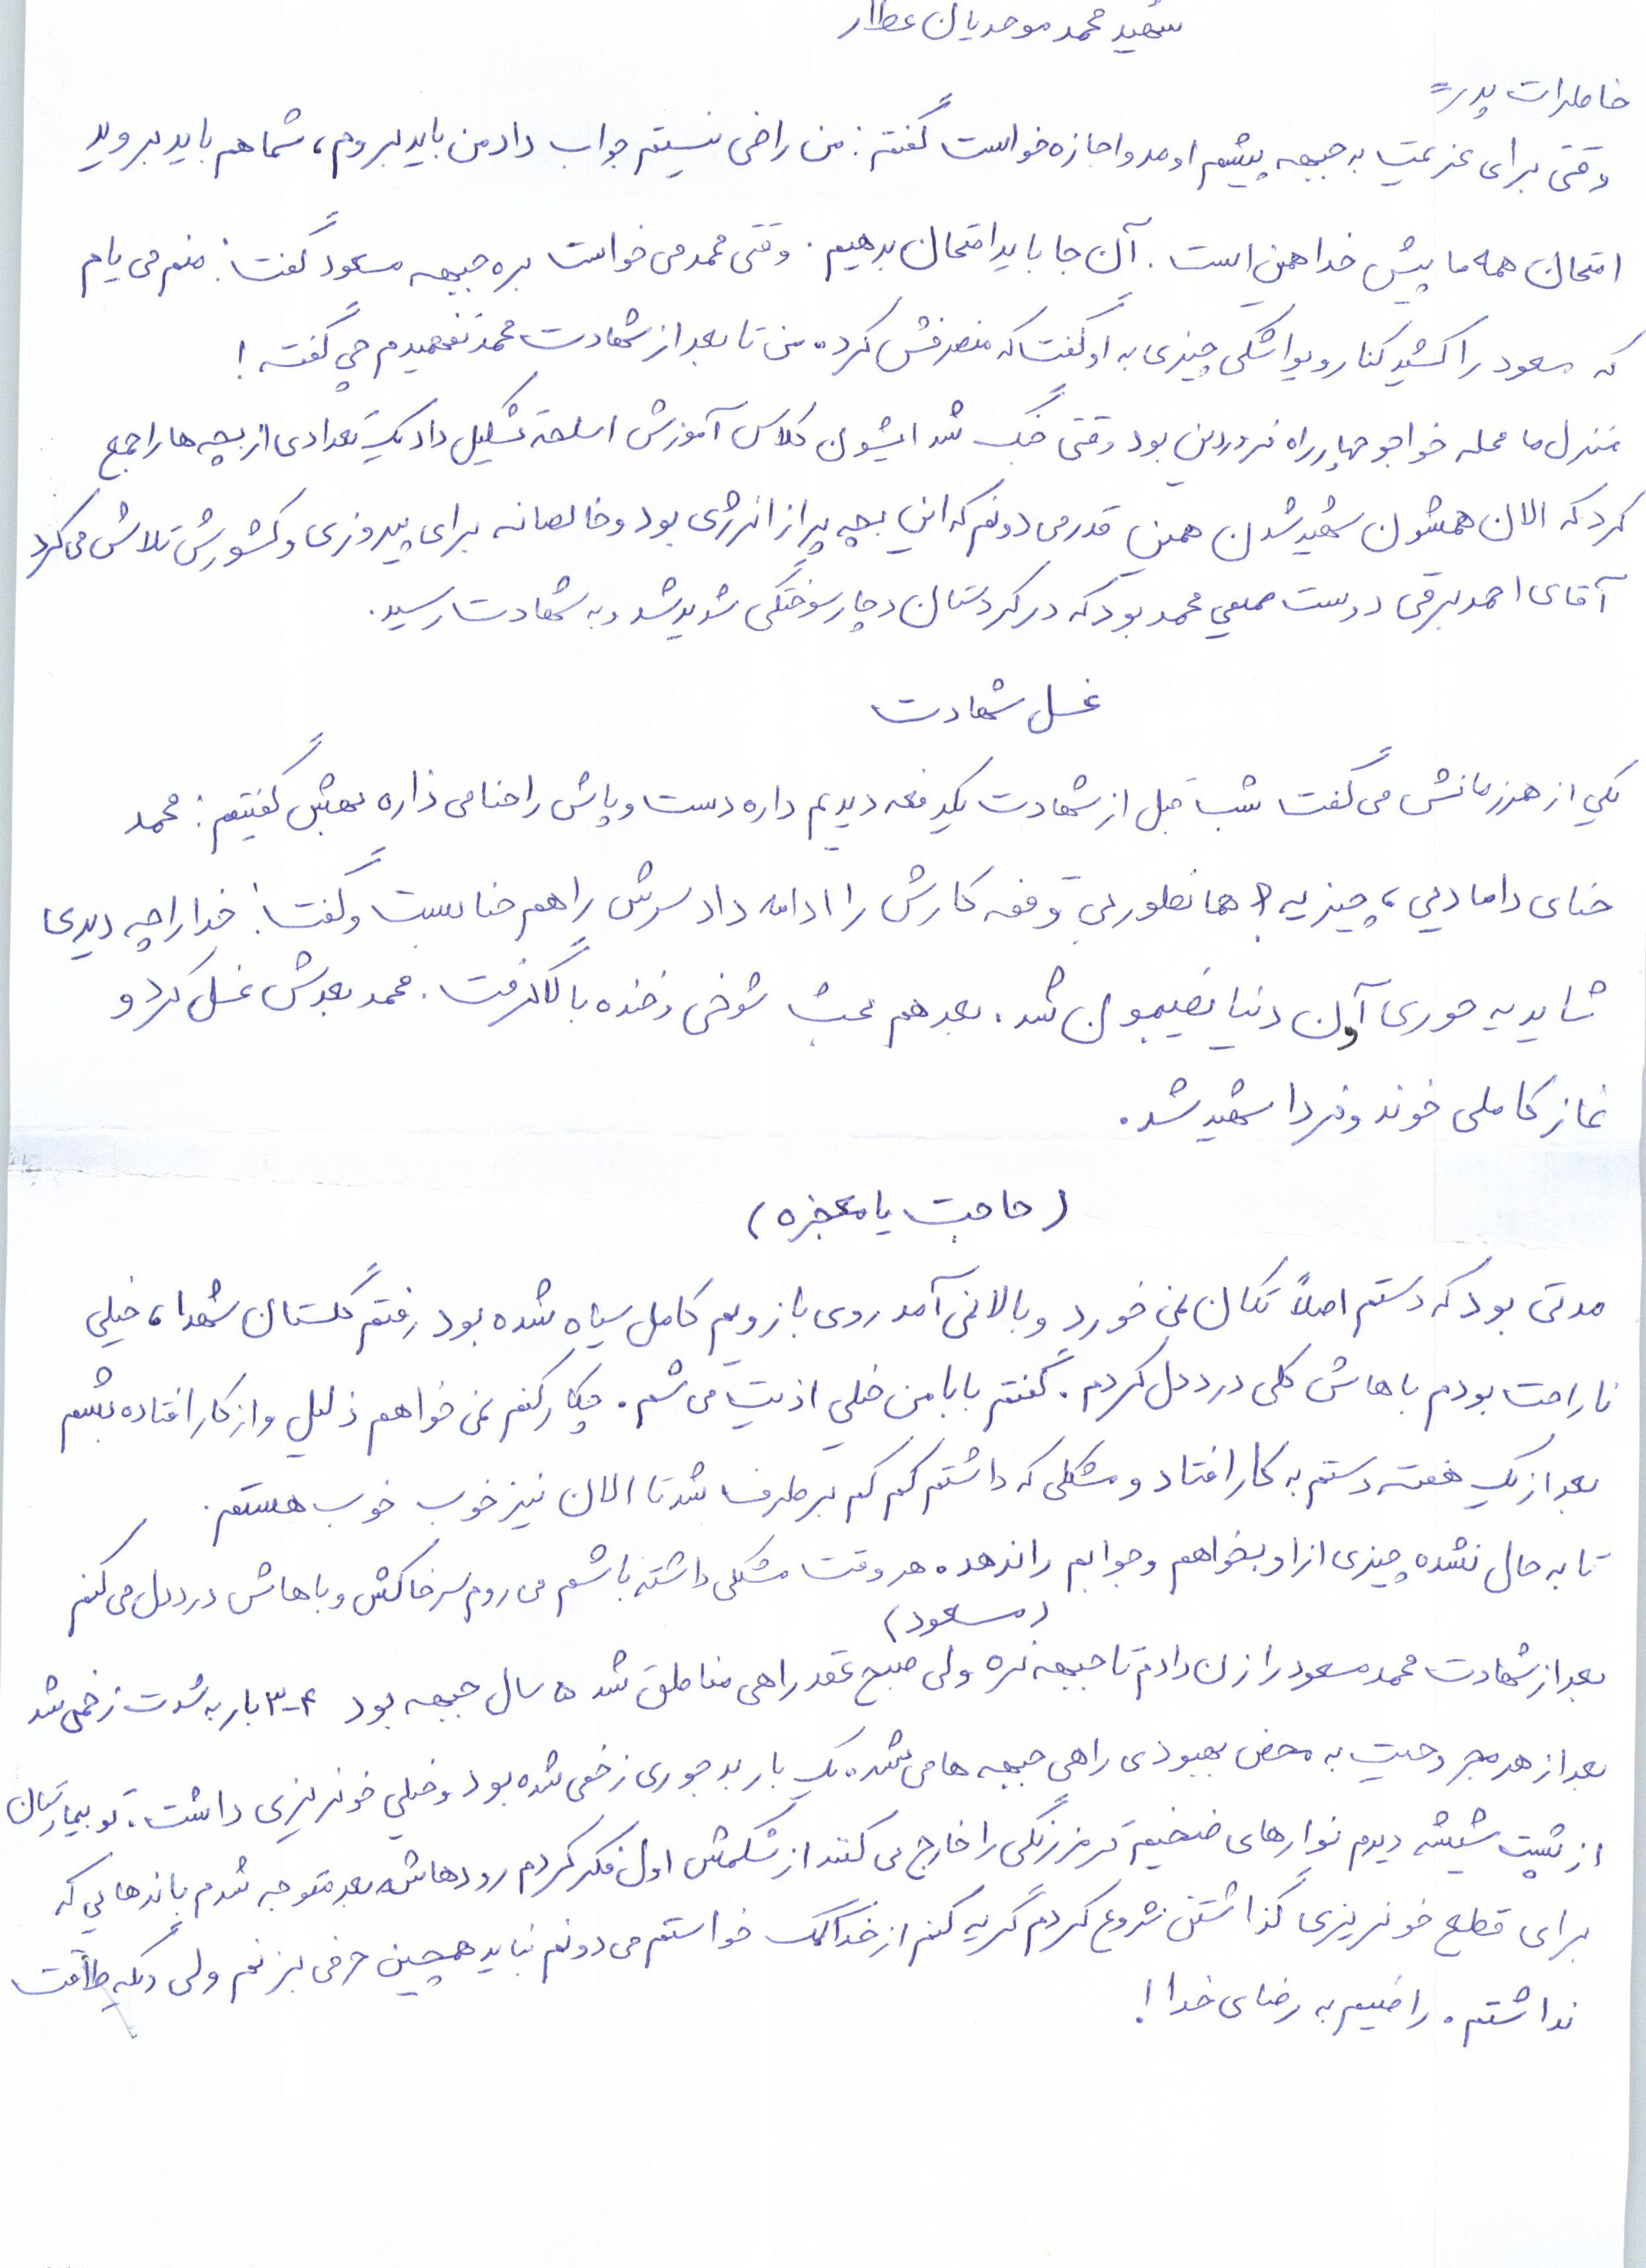 شهید محمد موحدیان عطار
خاطرات پدر =
وقتی برای عزیمت به جبهه پیشم اومد و اجازه خواست گفتم : من راضی نیستم جواب داد من باید بروم ، شما هم باید بروید
امتحان همه ما پیش خدا همین است . آن جا باید امتحان بدهیم . وقتی محمد می خواست بره جبهه مسعود گفت : منم می یام
که مسعود را کشید کنار و یواشکی چیزی به او گفت که منصرفش کرد . من تا بعد از شهادت محمد نفهمیدم چی گفته !
منزل ما محله خواجو چهارراه فروردین بود وقتی جنگ شد ایشون کلاس آموزش اسلحه تشکیل داد یک تعدادی از بچه ها را جمع
کرد که الان همشون شهید شدن همین قدر می دونم که این بچه پر از انرژی بود و خالصانه برای پیروزی و کشورش تلاش می کرد
آقای احمد برقی دوست صمیمی محمد بود که در کردستان دچار سوختگی شدید شد و به شهادت رسید .
غسل شهادت
یکی از همرزمانش می گفت شب قبل از شهادت یکدفعه دیدیم داره دست و پاش را حنا می ذاره بهش گفتیم : محمد
حنای دامادیی ، چیزیه ؟ همانطور بی وقفه کارش را ادامه داد سرش را هم حنا بست و گفت : خدا را چه دیدی
شاید یه حوری آون دنیا نصیبمون شد . بعد هم بحث شوخی و خنده بالا گرفت . محمد بعدش غسل کرد و
نماز کاملی خوند و فردا شهید شد .
( حاجت یا معجزه )
مدتی بود که دستم اصلاً تکان نمی خورد و بالا نمی آمد روی بازویم کامل سیاه شده بود رفتم گلستان شهدا ، خیلی
ناراحت بودم باهاش کلی درددل کردم . گفتم بابا من خیلی اذیت می شم . چکار کنم نمی خواهم ذلیل و از کار افتاده بشم
بعد از یک هفته دستم به کار افتاد و مشکلی که داشتم کم کم برطرف شد تا الان نیز خوب خوب هستم .
تا به حال نشده چیزی از او بخواهم و جوابم را ندهد . هر وقت مشکلی داشته باشم می روم سر خاکش و باهاش درددل می کنم
(مسعود)
بعد از شهادت محمد مسعود را زن دادم تا جبهه نره ولی صبح عقد راهی مناطق شد ۵ سال جبهه بود ۴-۳ بار به شدت زخمی شد
بعد از هر مجروحیت به محض بهبودی راهی جبهه ها می شد . یک بار بدجوری زخمی شده بود و خیلی خونریزی داشت . تو بیمارستان
از پشت شیشه دیدم نوارهای ضخیم قرمز رنگی را خارج می کنند از شکمش اول فکر کردم رودهاشه بعد متوجه شدم باندهایی که
برای قطع خونریزی گذاشتن شروع کردم گریه کنم از خدا کمک خواستم می دونم نباید همچین حرفی بزنم ولی دیگه طاقت
نداشتم . راضیم به رضای خدا !